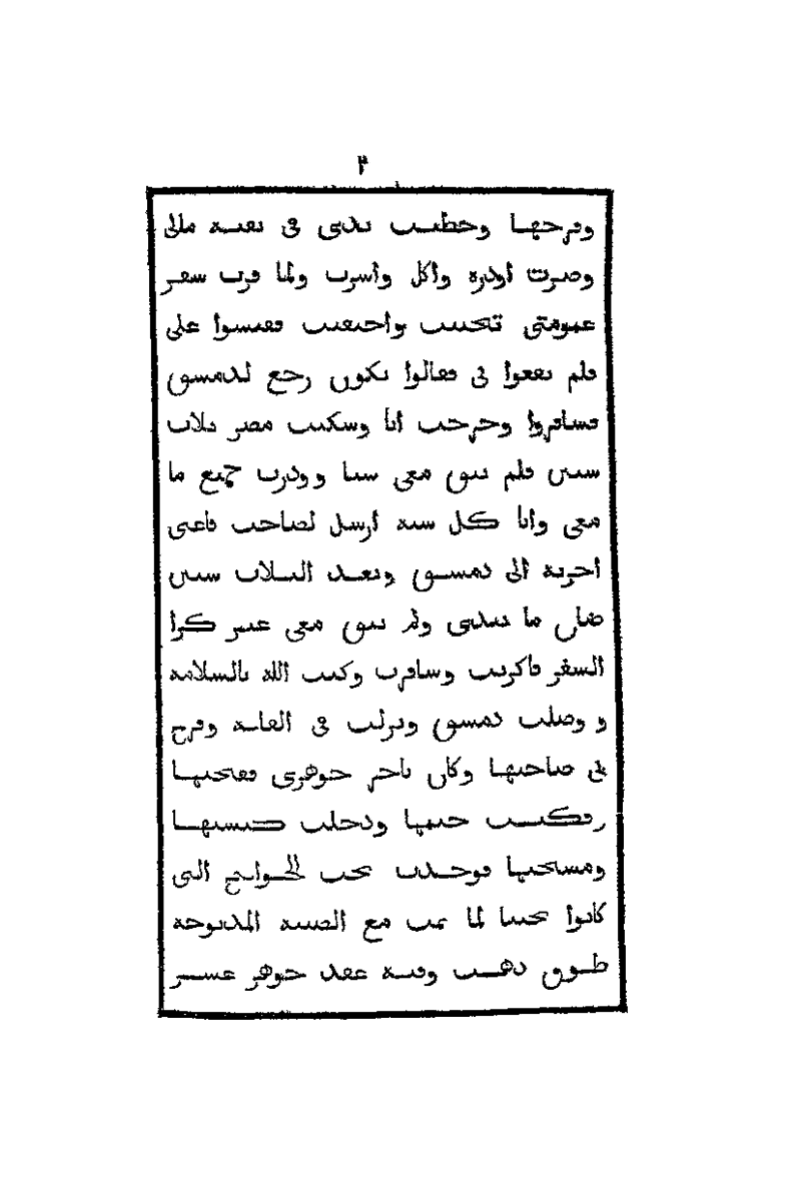 ٣
وفرجها وحطيت يدي في بقية مالي
وصرت أبذره وأكل وأشرب ولما قرب سفر
عمومتي تخبيت واختفيت ففتشوا علي
فلم يقعوا في فقالوا يكون رجع لدمشق
فسافروا وخرجت أنا وسكنت مصر ثلاث
سنين فلم يبق معي شيا وبذرت جميع ما
معي وأنا كل سنة أرسل لصاحب قاعتي
أجرته ألى دمشق وبعد الثلاث سنين
ضاق ما بيدي ولم يبق معي غير كرا
السفر فاكريت وسافرت وكتب الله بالسلامه
و وصلت دمشق ونزلت في القاعة وفرح
في صاحبها وكان تاجر جوهري ففتحتها
وفكيت ختمها ودخلت كنستها
ومسحتها فوجدت تحت الحوايج التي
كانوا تحتنا لما نمت مع الصبية المذبوحة
طوق ذهب وفيه عقد جوهر عشر